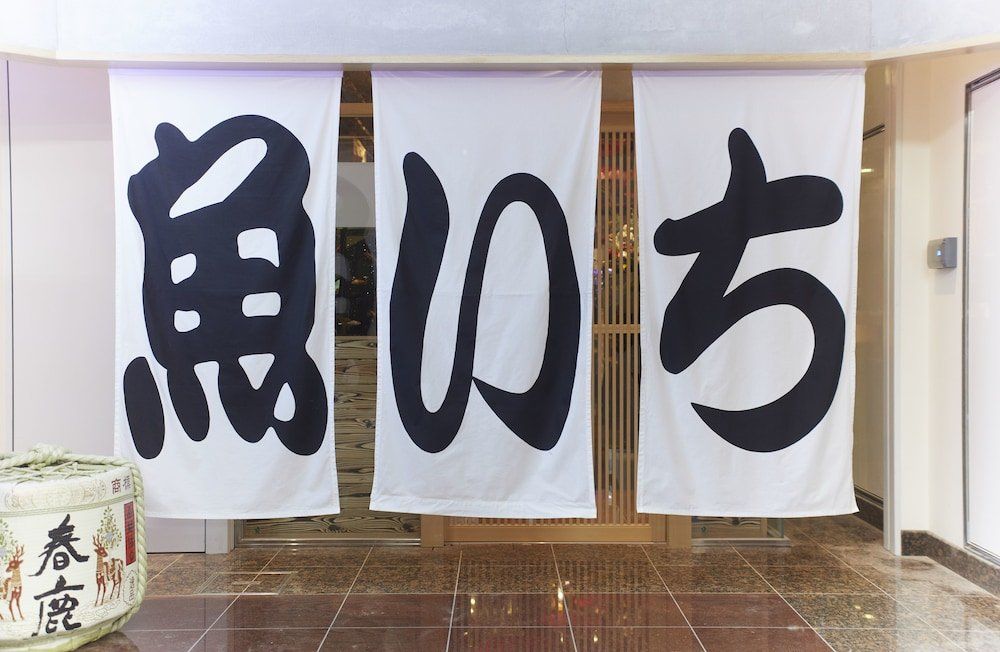 魚いち
商標
春鹿